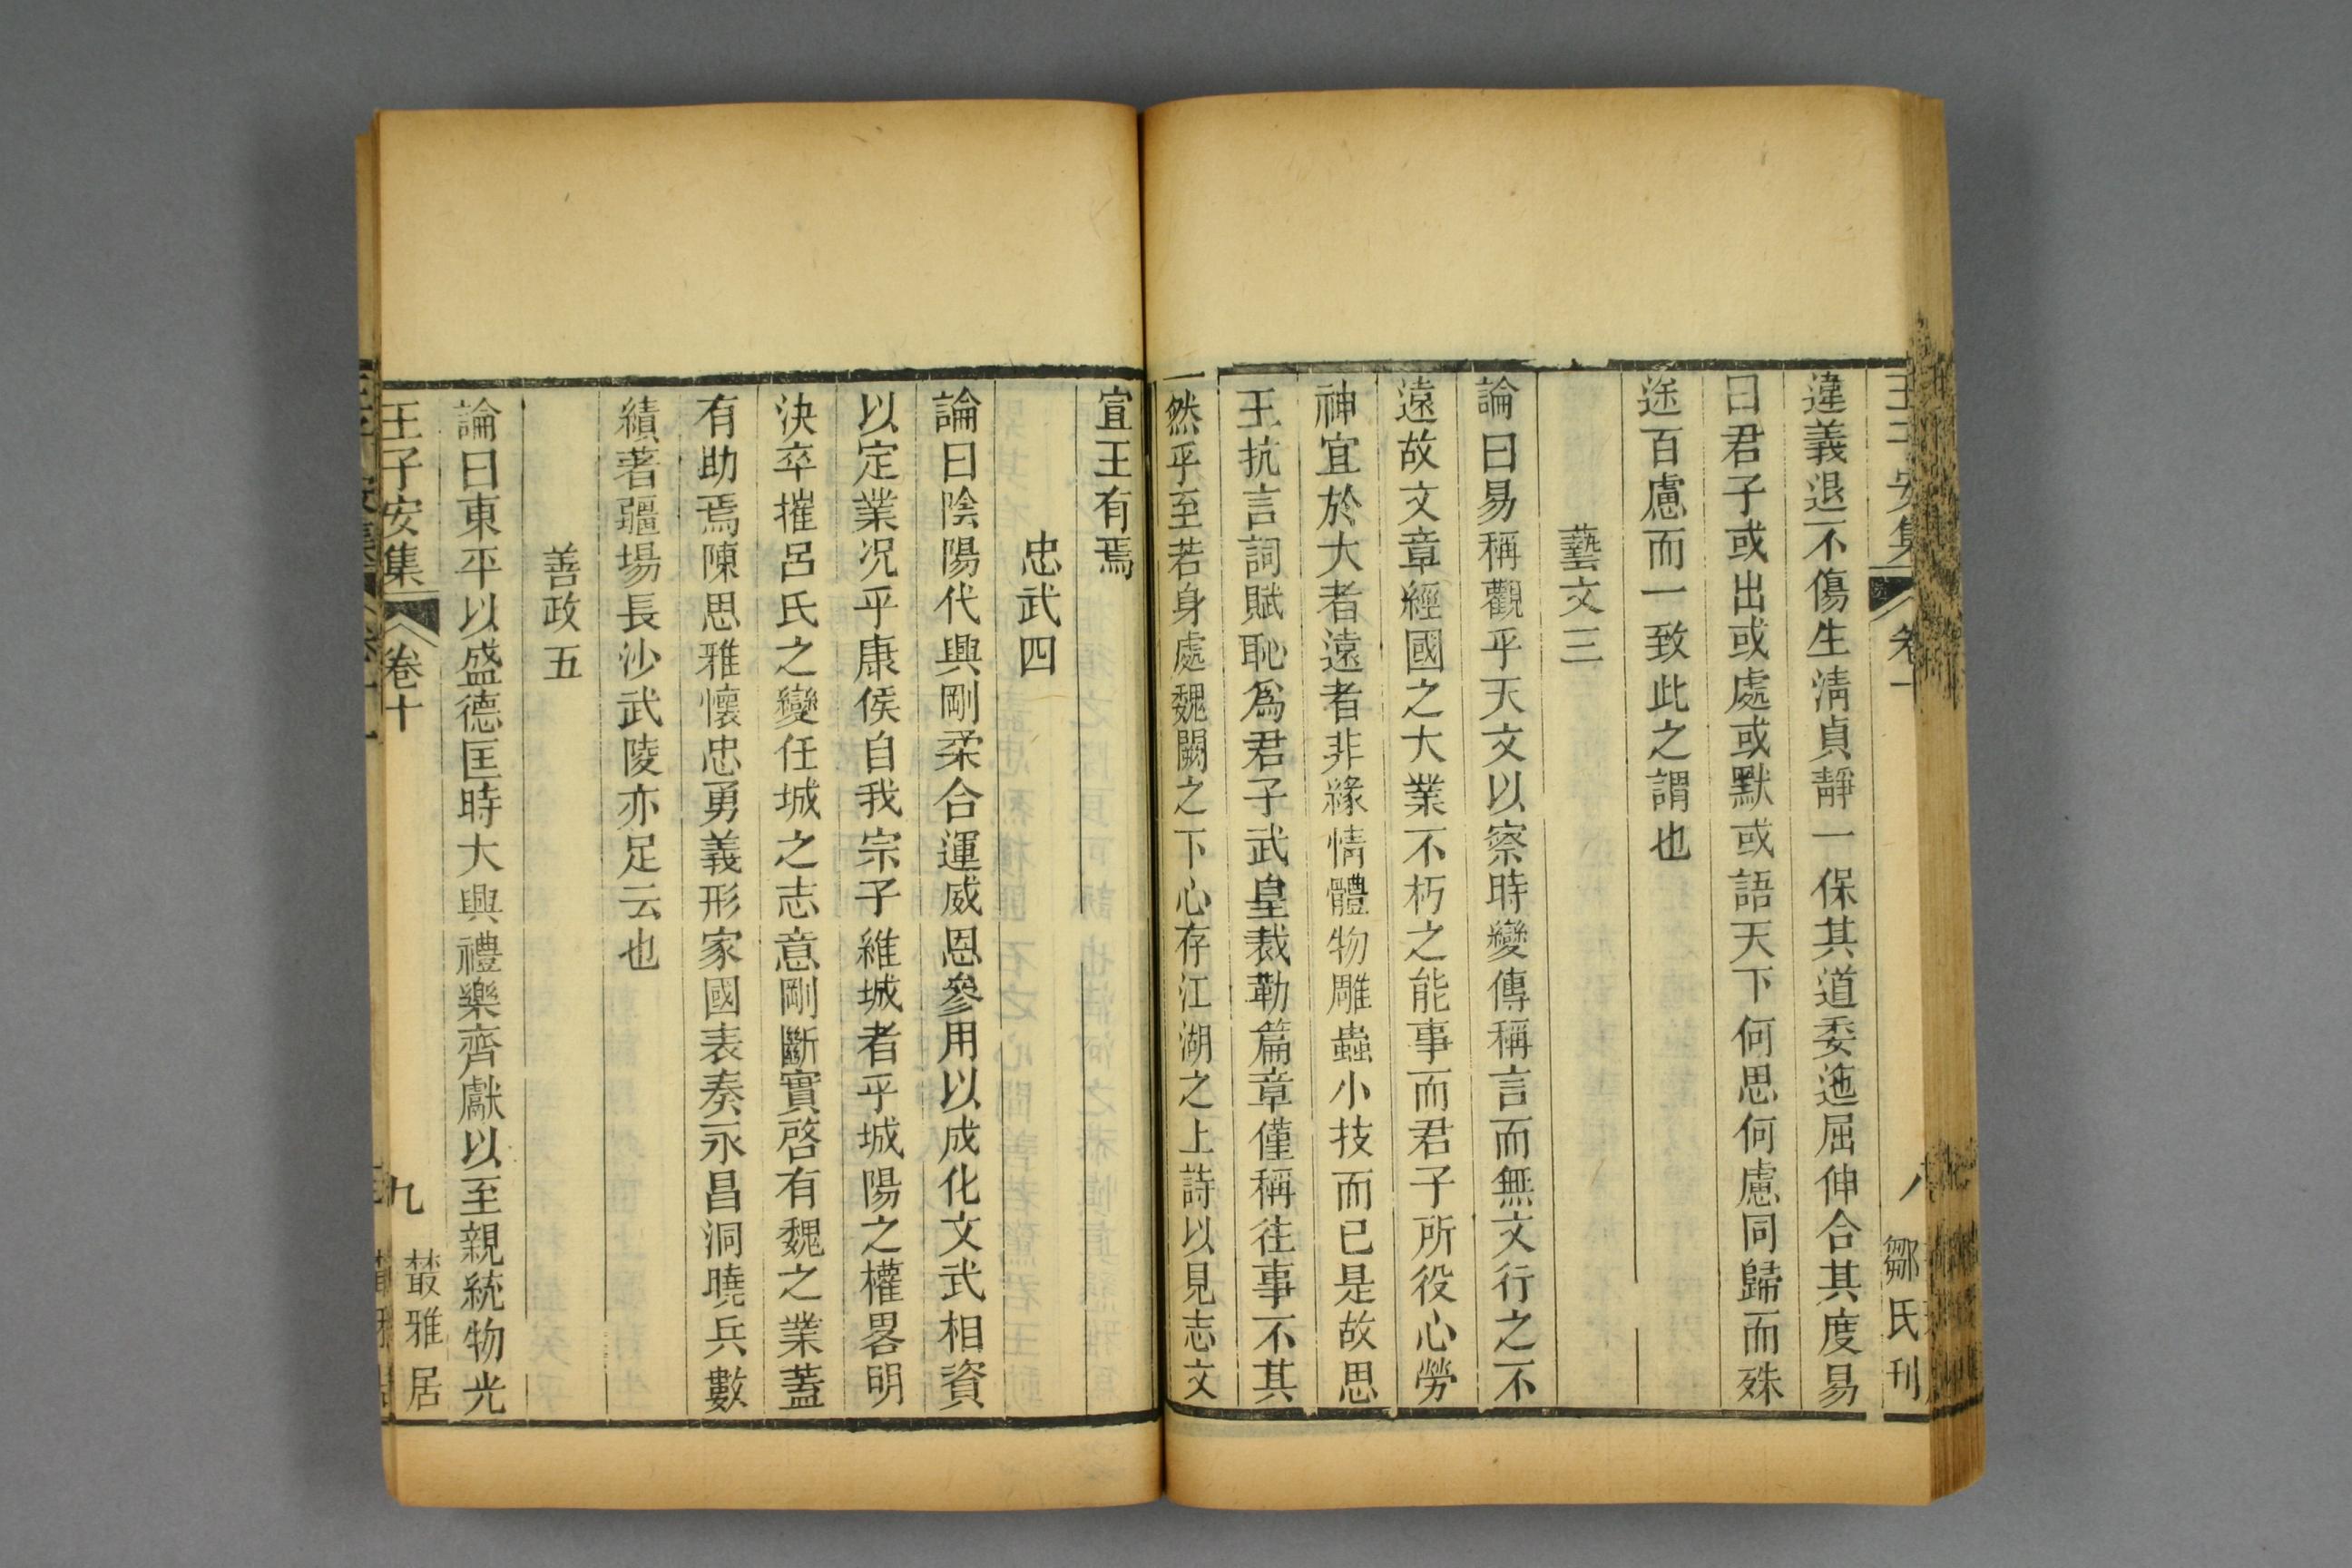 王子安集 卷十 鄒氏刊
違義退不傷生淸貞靜一保其道委迤屈伸合其度易
曰君子或出或處或默或語天下何思何慮同歸而殊
途百慮而一致此之謂也
藝文三
論曰易稱觀乎天文以察時變傳稱言而無文行之不
遠故文章經國之大業不朽之能事而君子所役心勞
神宜於大者遠者非緣情體物雕蟲小技而已是故思
王抗言詞賦恥爲君子武皇裁勅篇章僅稱往事不其
然乎至若身處魏闕之下心存江湖之上詩以見志文
宣王有焉
忠武四
論曰陰陽代興剛柔合運威恩參用以成化文武相資
以定業况乎康侯自我宗子維城者乎城陽之權畧明
決卒摧呂氏之變任城之志意剛斷實啓有魏之業蓋
有助焉陳思雅懷忠勇義形家國表奏永昌洞曉兵數
績著疆場長沙武陵亦足云也
善政五
論曰東平以盛德匡時大興禮樂齊獻以至親統物光
王子安集 卷十 九 叢雅居